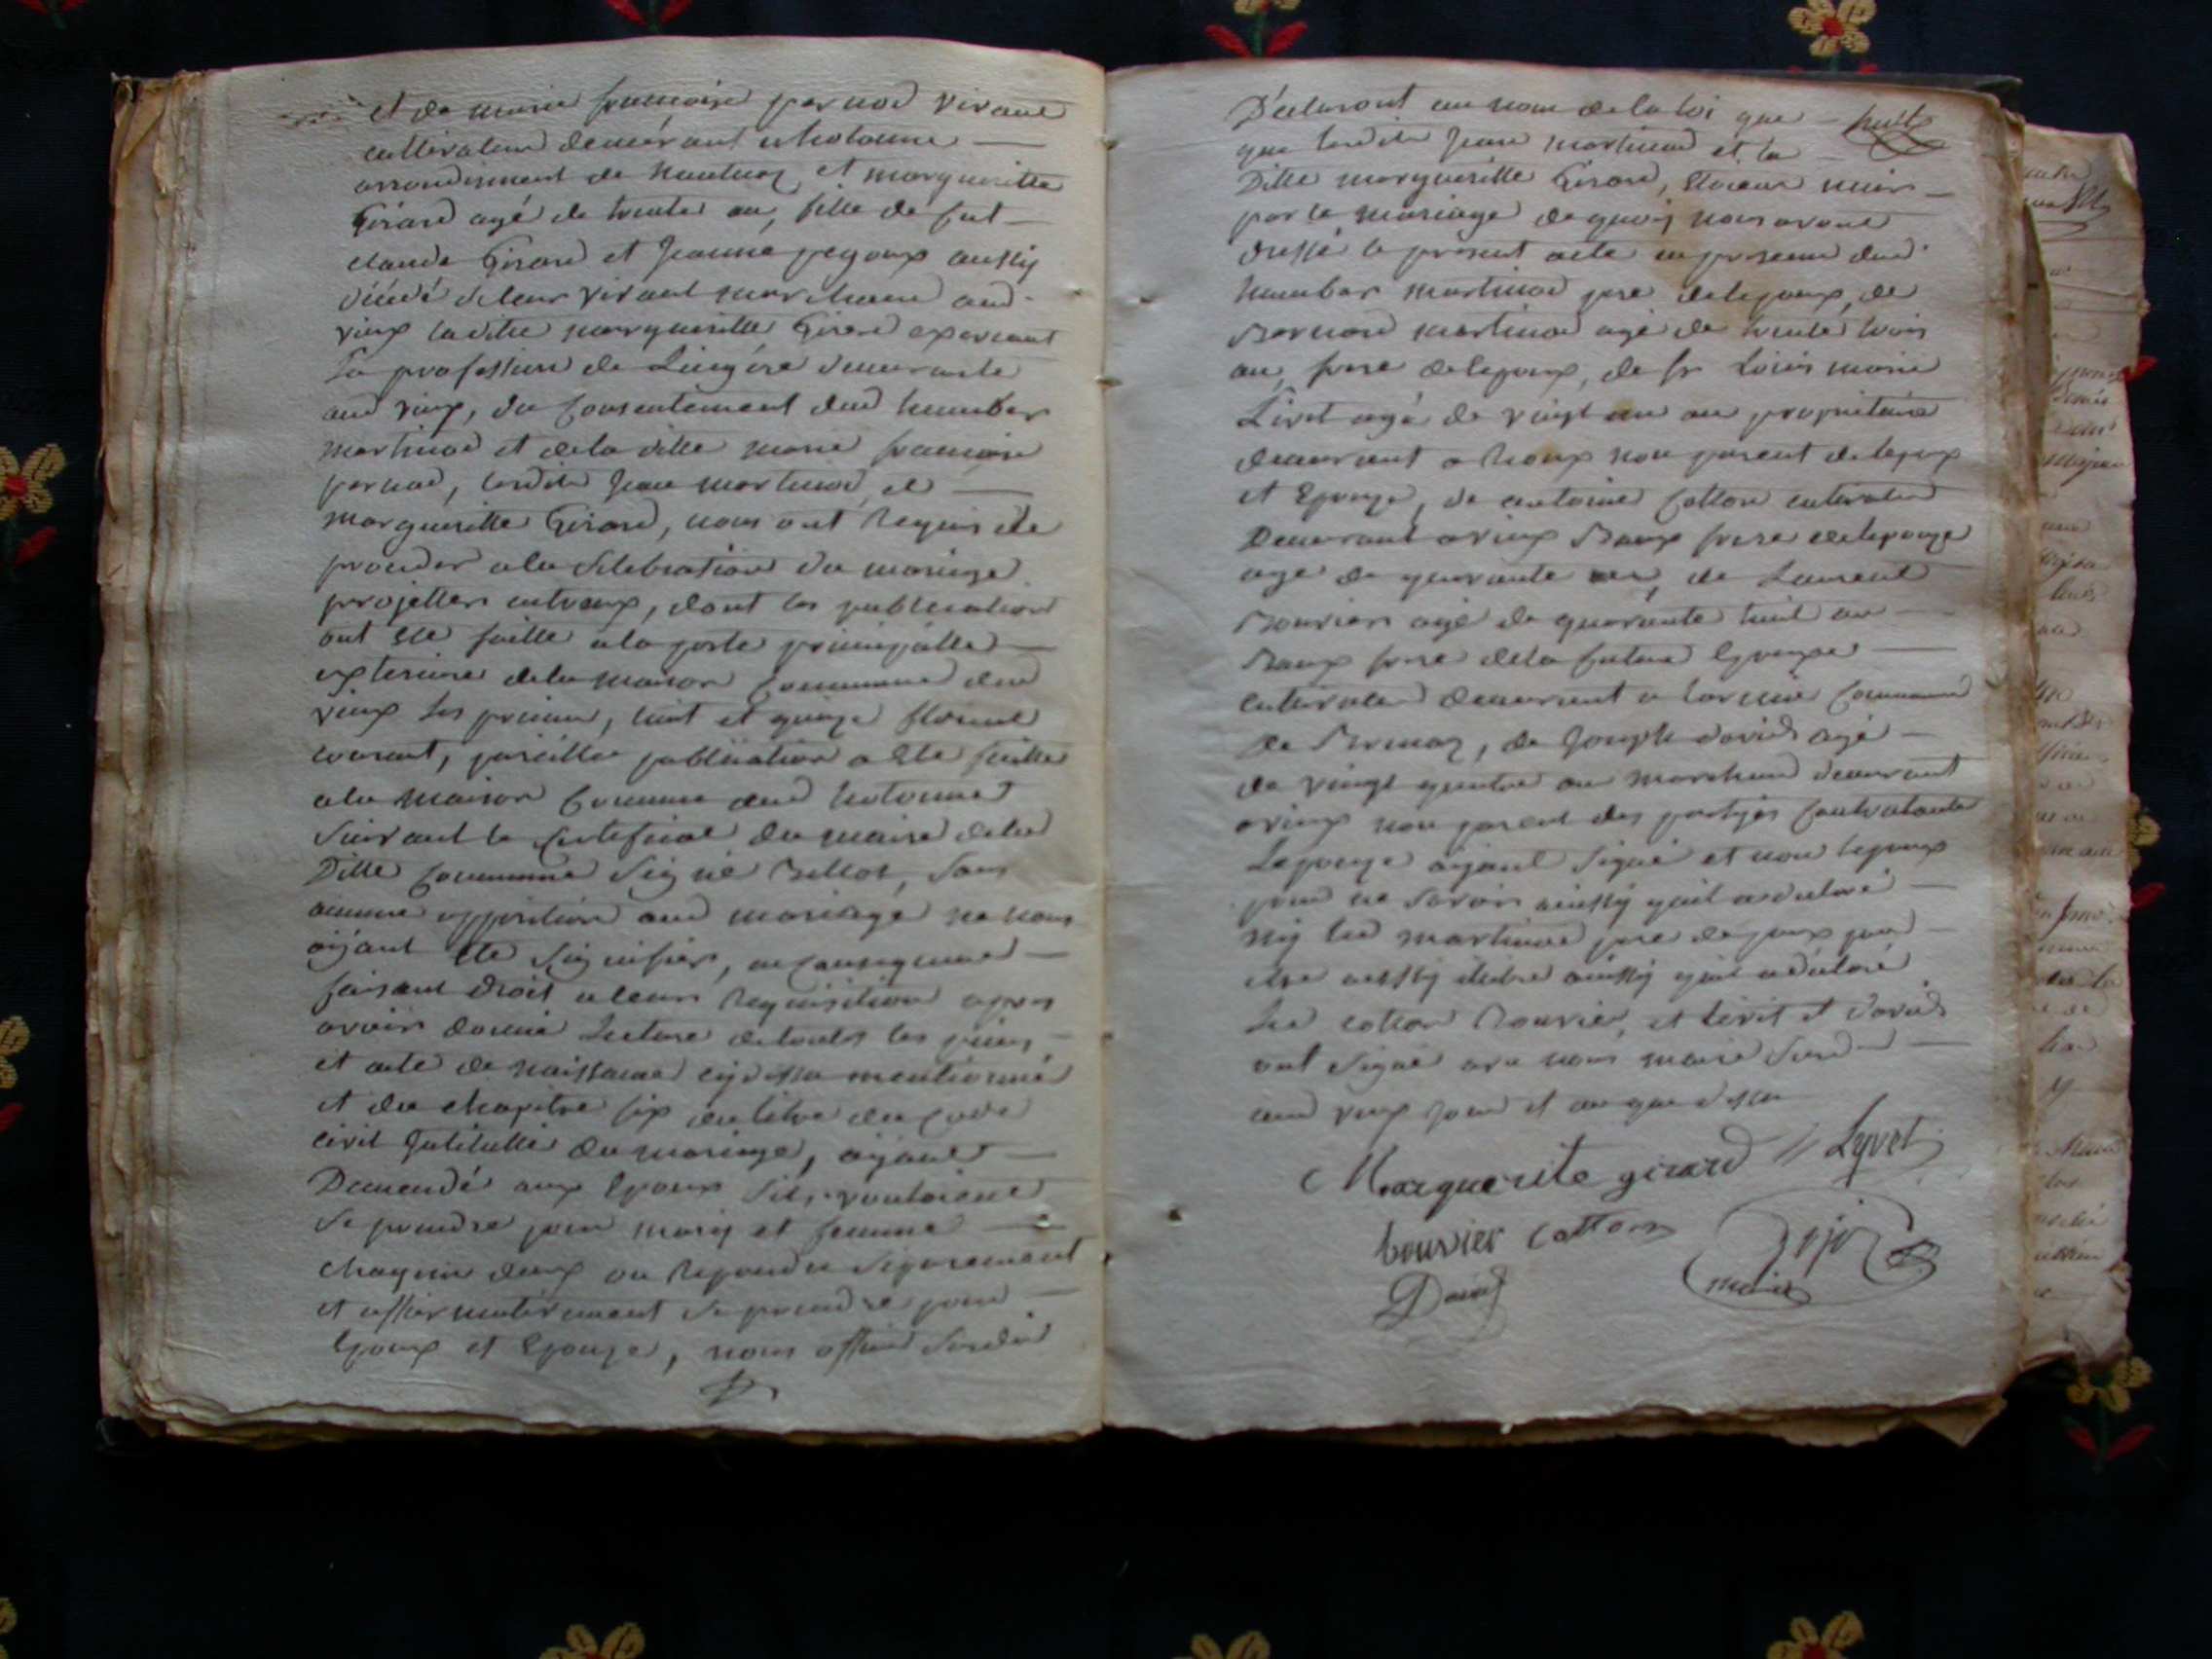 et de marie francoise pernod vivant
cultivateur demeurant a hotonne
arrondissement de Nantua, et margueritte
Girard agé de trente an, fille de fut
claude Girard et Jeanne pegoux aussy
décédé de leur vivant marchand aud
vieux ladite margueritte Girard exercant
la profession de Lingére demeurante
aud vieux, du Consentement dud humber
martinod et de la ditte marie francoise
pernod, lesdits Jean martinod et
margueritte Girard, nous ont Requis de
proceder a la Selebration du mariage
projetter entreaux, dont les publication
ont ete faitte a la porte principalle
exterieure de la maison Commune dud
vieux les premier, huit et quinze floreal
courant, pareille publication a ete faitte
a la maison Commune dud hotonne
Suivant le Certificat du maire de la
Ditte Commune Signé Billot, Sans
aucune opposition aud mariage ne nous
aÿant ete Signifier, en Consequence
faisant droit a leurs Requisition apres
avoir donné Lecture de toutes les pieces
et acte de naissance cy dessu mentionné
et du chapitre six du titre du Code
Civil Jntitullé du mariage, aÿant
Demandé aux Epoux Sils vouloient
Se prendre pour mary et femme
chaqun deux on Repondu Séparement
et affirmativement Se prendre pour
Epoux et Epouze, nous officier Susdit
Déclaront au nom de la loi que
huit
que lesdits Jean martinod et la
Ditte margueritte Girard, Etoient unis
par le mariage de quoy nous avont
dressé le présent acte en présence dud
humber martinod pere de lepoux, de
Bernard martinod agé de trente trois
an, frere de lepoux, de sr Louis marie
Livet agé de vingt un an propriétaire
demeurant a Lioux non parent de lepoux
et Epouze, de antoine Cotton cultivateur
Demeurant a vieux Beaux frere de lepouze
age de quarante an, de Laurent
Bouvier agé de quarante huit an
Beaux frere de la future Epouze
cultivateur demeurant a Commune
de, de Joseph david agé
de vingt quatre an marchand demeurant
a vieux non parent des partyes Contratante
Lepouze aÿant Signé et non lepoux
pour ne Savoir ainssy quil a déclaré
ny led martinod pere de poux pour
etre aussy ainssy quil a déclaré
Les Cotton Bouvier, et Livet et david
ont Signé avec nous maire Susd
aud vieux jour et an que dessu
Marguerite girard Lyvet
bouvier Cotton
David maire